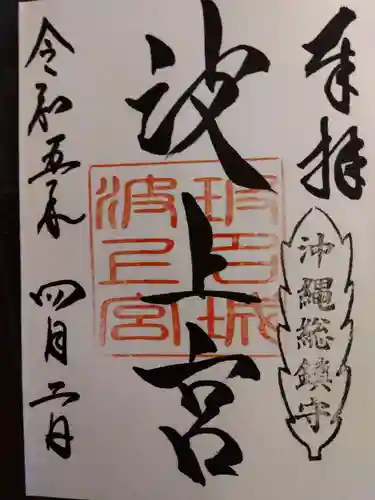 奉拝
沖縄総鎮守
波上宮
波上宮
令和五年
四月二日